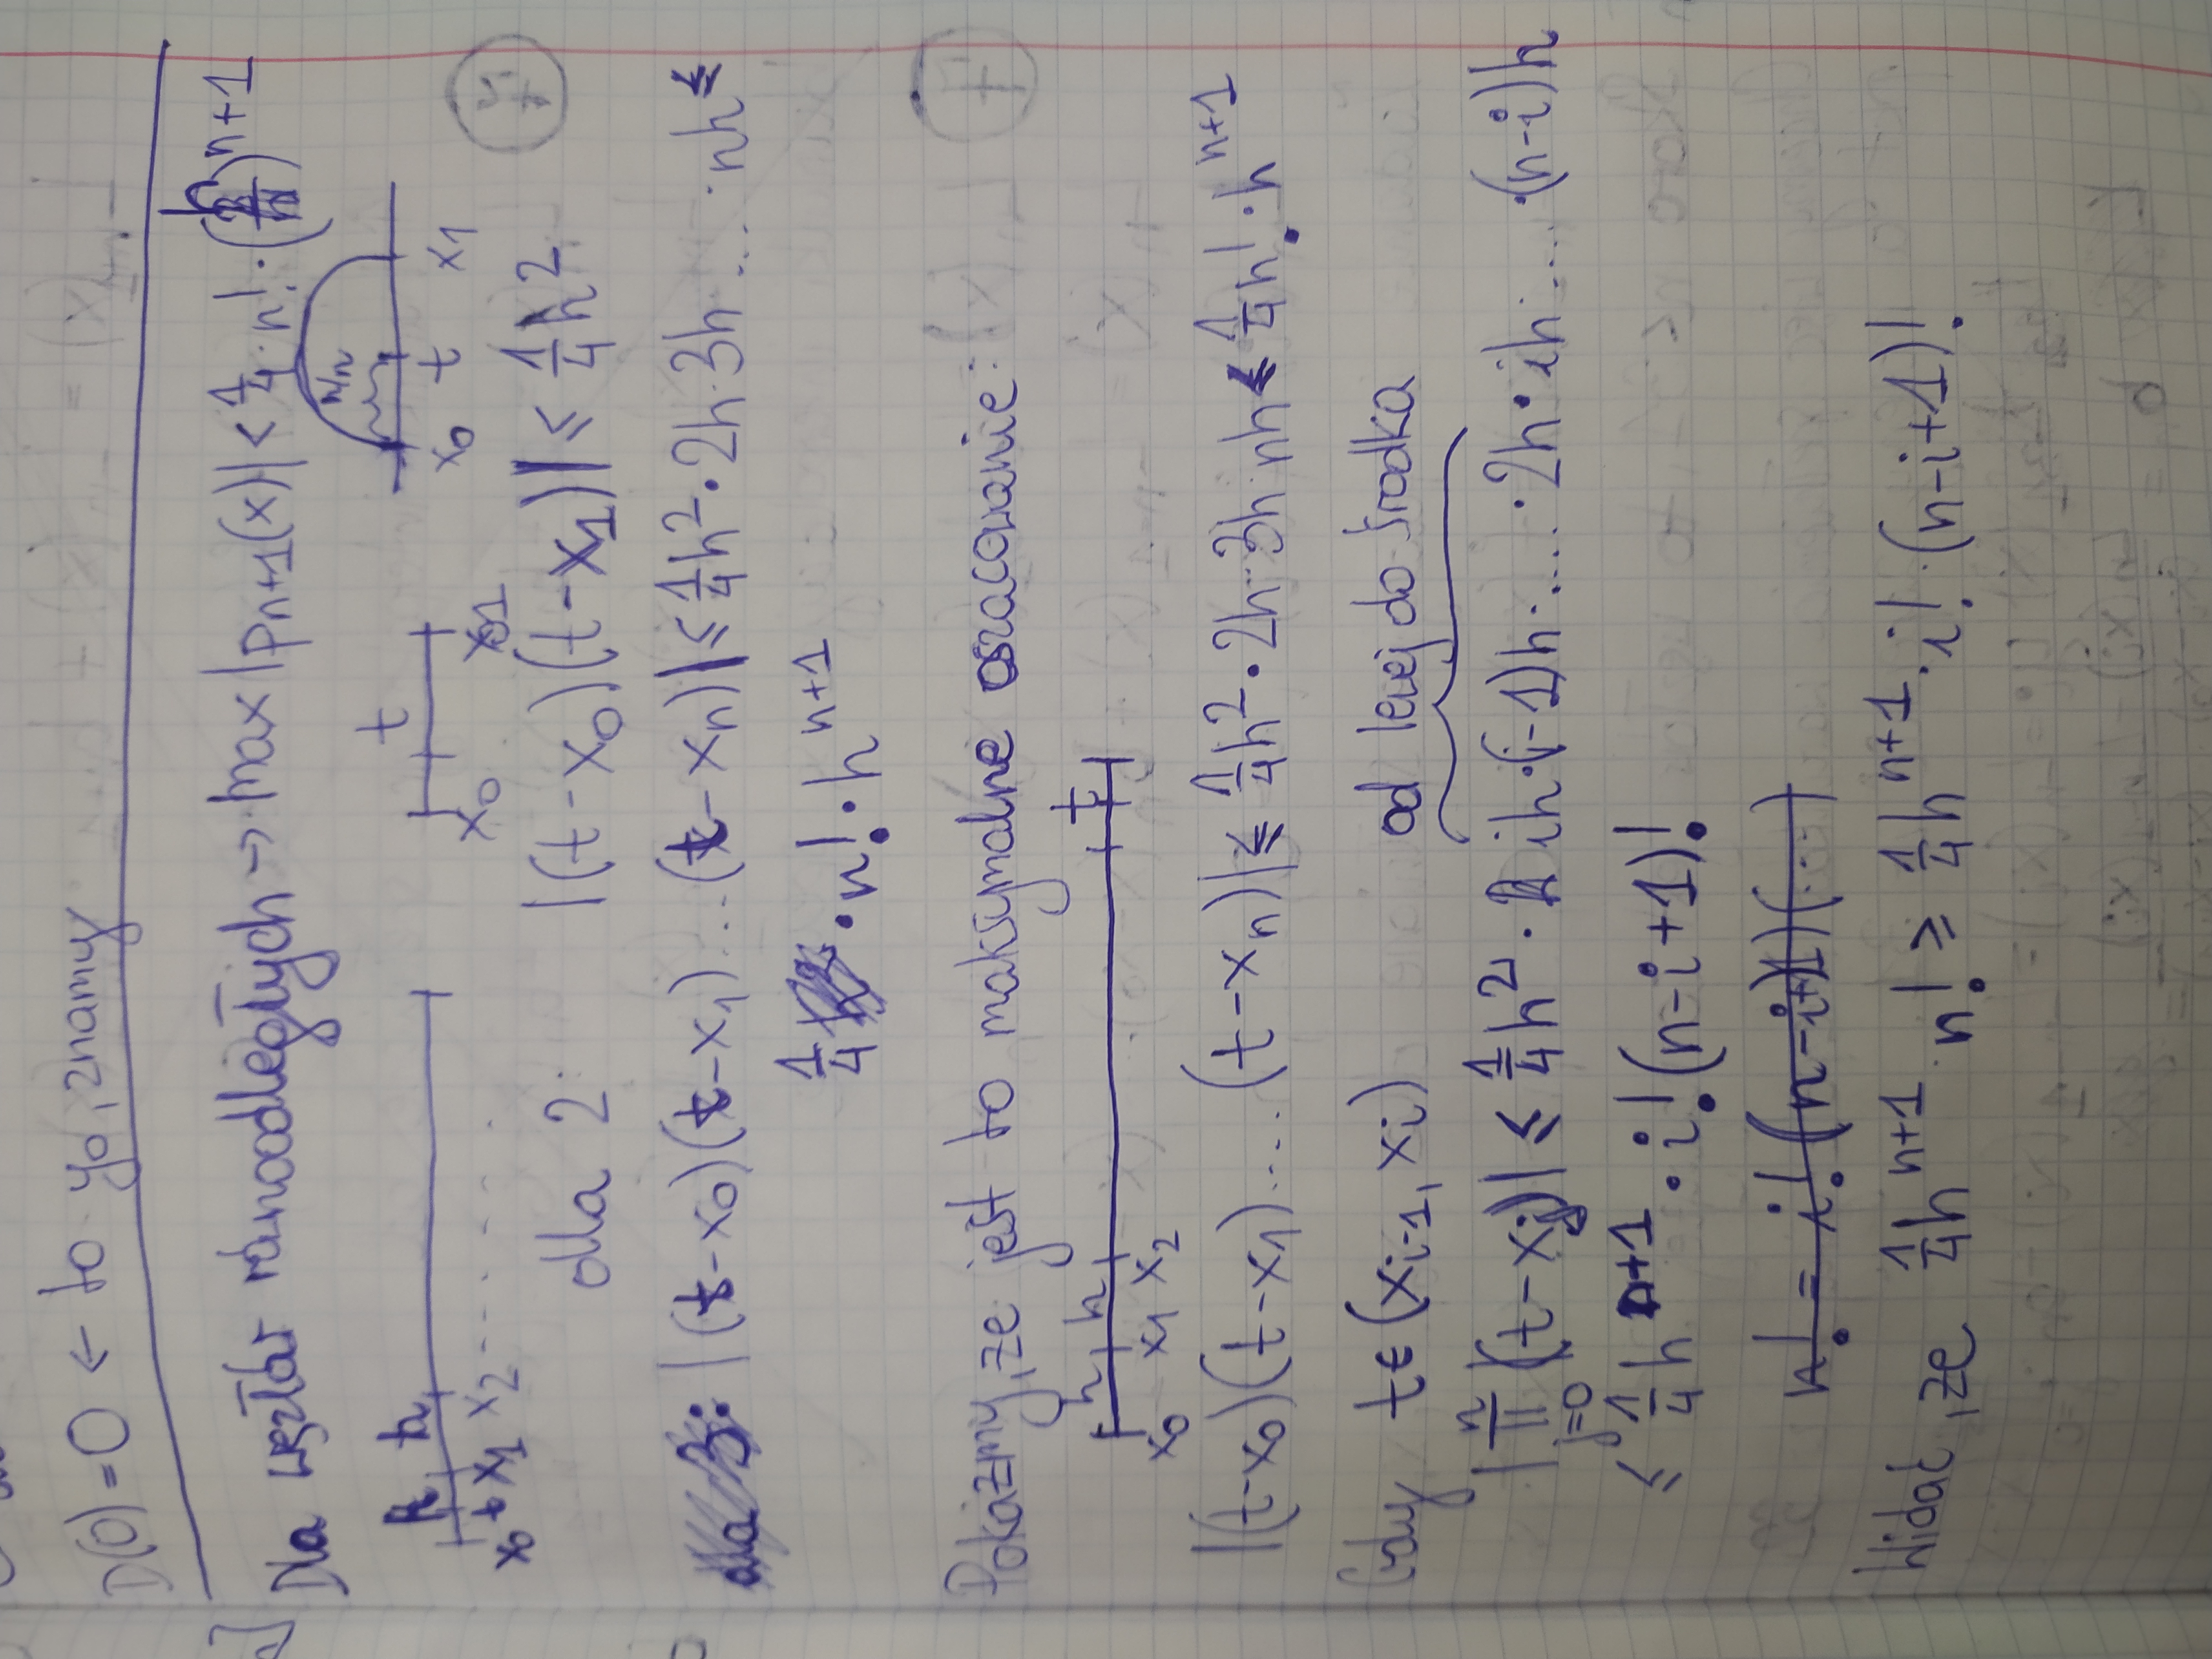 D(0) = 0 ← to y₀, znamy
Dla węzłów równoodległych → max |pₙ₊₁(x)| ≤ 1/4 · n! · (h)ⁿ⁺¹
h h t
x₀ t x₁ x₂ ....... x₀ x₁ x₀ t x₁
dla 2: |(t-x₀)(t-x₁)| ≤ 1/4 h²
|(t-x₀)(t-x₁)...(t-xₙ)| ≤ 1/4 h² · 2h · 3h ... · nh ≤
1/4 · n! · hⁿ⁺¹
Pokażmy, że jest to maksymalne oszacowanie:
h h t
x₀ x₁ x₂
|(t-x₀)(t-x₁)....(t-xₙ)| ≤ 1/4 h² · 2h · 3h · nh ≤ 1/4 n! · hⁿ⁺¹
Gdy t ∈ (xᵢ₋₁, xᵢ) od lewej do środka
|∏ⁿⱼ₌₀ (t-xⱼ)| ≤ 1/4 h² · ih · (i-1)h · .... · 2h · ih · .... · (n-i)h
≤ 1/4 hⁿ⁺¹ · i! (n-i+1)!
n! = i! (n-i+1)(...)
Widać, że 1/4 hⁿ⁺¹ · n! ≥ 1/4 hⁿ⁺¹ · i! · (n-i+1)!